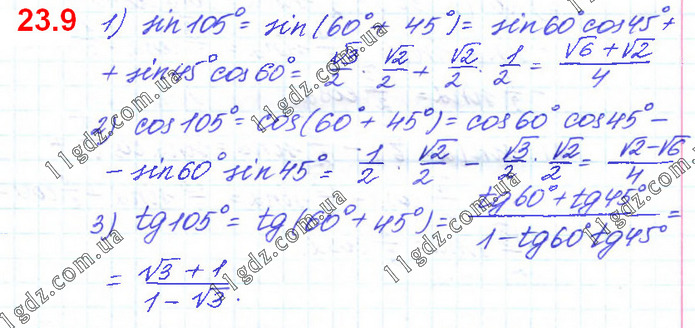 23.9 1) sin105° = sin(60° + 45°) = sin60°cos45° +
+ sin45°cos60° = √3/2 · √2/2 + √2/2 · 1/2 = (√6 + √2)/4
2) cos105° = cos(60° + 45°) = cos60°cos45° −
− sin60°sin45° = 1/2 · √2/2 − √3/2 · √2/2 = (√2 − √6)/4
3) tg105° = tg(60° + 45°) = (tg60° + tg45°)/(1 − tg60°tg45°) =
= (√3 + 1)/(1 − √3).
11gdz.com.ua
11gdz.com.ua
11gdz.com.ua
11gdz.com.ua
11gdz.com.ua
11gdz.com.ua